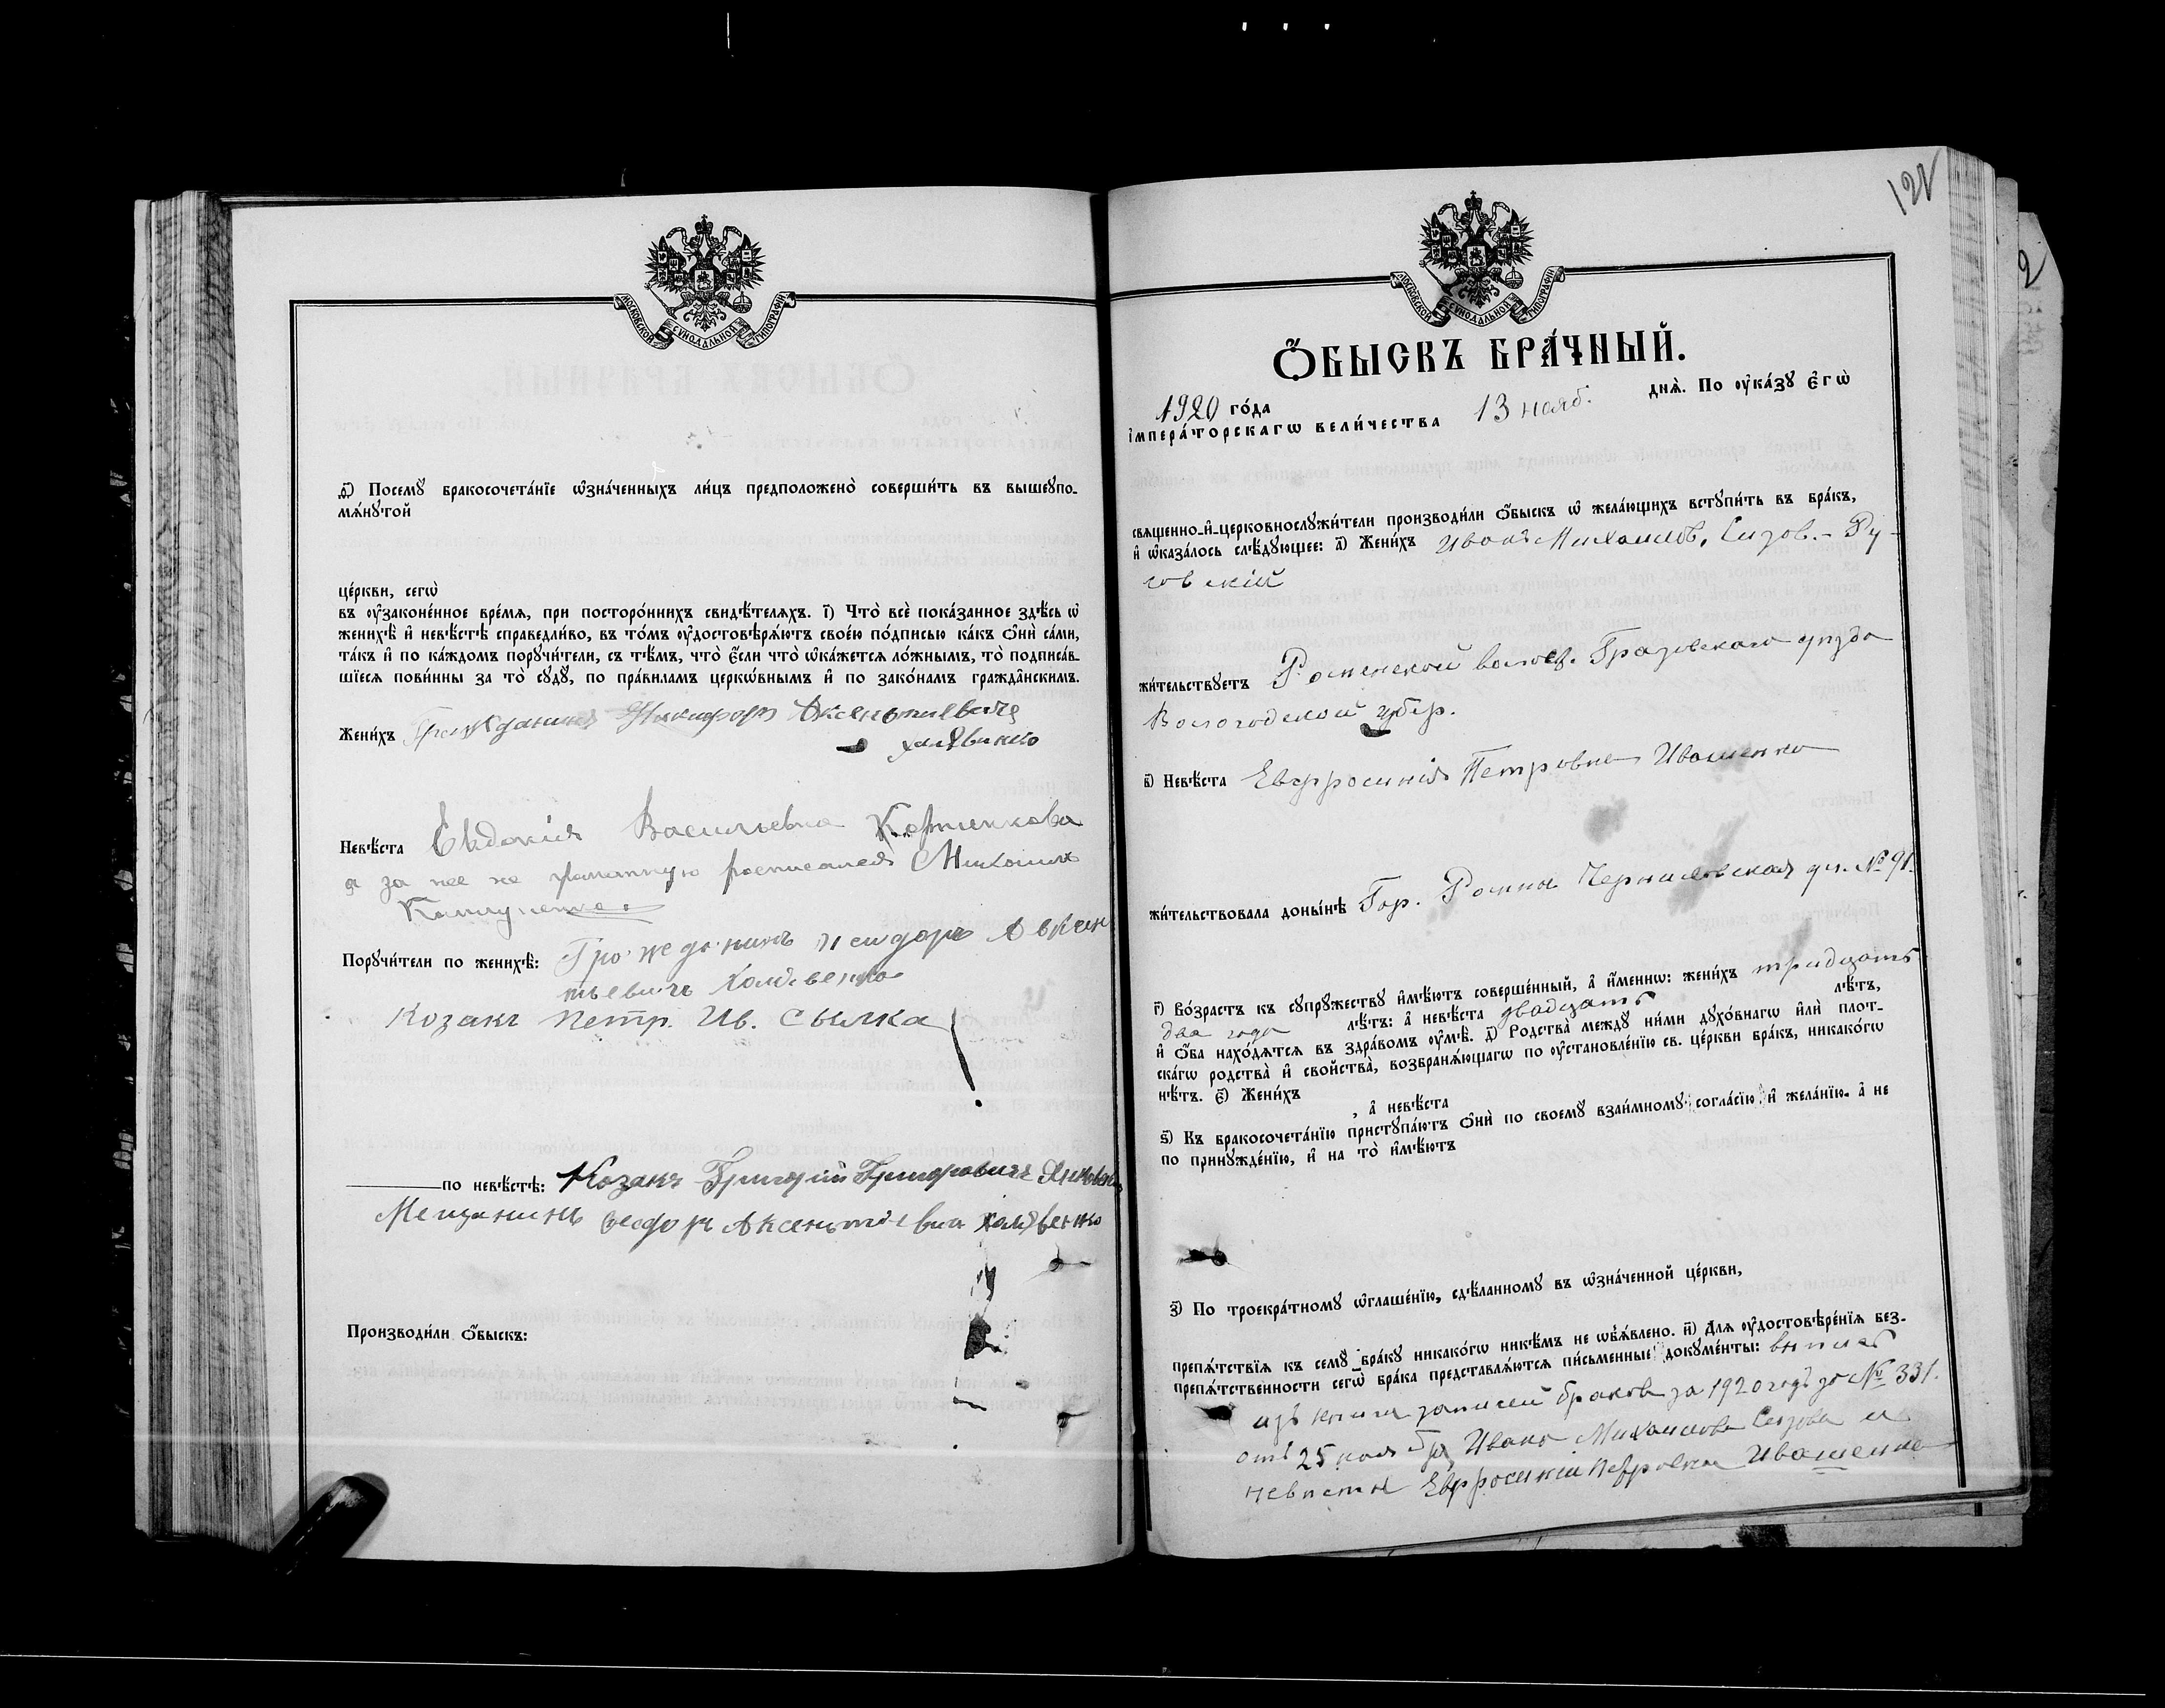 МОСКОВСКОЙ СѴНОДАЛЬНОЙ ТИПОГРАФІИ
ѳ҃) Посемꙋ̀ бракосочета́нїе ѡ҆зна́ченныхъ ли́цъ предположено̀ соверши́ть въ вышеꙋпо-
мѧ́нꙋтой
це́ркви, сегѡ̀
въ ᲂу҆законе́нное вре́мѧ, при посторо́ннихъ свидѣ́телѧхъ. і҃) Что̀ всѐ пока́занное здѣ́сь ѡ҆
женихѣ̀ и҆ невѣ́стѣ справедли́во, въ то́мъ ᲂу҆достовѣрѧ́ютъ свое́ю по́дписью ка́къ ѻ҆нѝ са́ми,
та́къ и҆ по ка́ждомъ порꙋчи́тели, съ тѣ́мъ, что̀ є҆́сли что̀ ѡ҆ка́жетсѧ ло́жнымъ, то̀ подписа́в-
шїесѧ пови́нны за то̀ сꙋдꙋ̀, по пра́виламъ церкѡ́внымъ и҆ по зако́намъ гражда̂нскимъ.
Жени́хъ Гражданинъ Никифоръ Аксентиевичъ
Халявенко
Невѣ́ста Евдокия Васильевна
а за нее не грамотную росписался
Порꙋчи́тели по женихѣ̀: Гражданинъ Исидоръ Авксен
тьевичъ Халявенко
Козакъ Петр. Ив. Сылка
по невѣ́стѣ: Козакъ Григорій Григоровичъ
Мещанинъ Федоръ Аксентіевич Халявенко
Производи́ли ѻ҆́быскъ:
122
2
МОСКОВСКОЙ СѴНОДАЛЬНОЙ ТИПОГРАФІИ
Ѻ҆́БЫСКЪ БРА́ЧНЫЙ.
1920 го́да 13 нояб. днѧ̀. По ᲂу҆ка́зꙋ Є҆гѡ̀
І҆мпера́торскагѡ вели́чества
свѧщенно-и҆-церковнослꙋжи́тели производи́ли ѻ҆́быскъ ѡ҆ жела́ющихъ встꙋпи́ть въ бра́къ,
и҆ ѡ҆каза́лось слѣ́дꙋющее: а҃) Жени́хъ Иванъ Михаилов. Сизов. - Ру-
совскій
жи́тельствꙋетъ Роменской волос. Грязовскаго уѣзда
Вологодской губер.
в҃) Невѣ́ста Евфросинія Петровна Иващенко
жи́тельствовала доны́нѣ Гор. Ромны Черниловская ул. № 91.
г҃) Во́зрастъ къ сꙋпрꙋ́жествꙋ и҆мѣ́ютъ соверше́нный, а҆ и҆́менно: жени́хъ тридцать
два года лѣ́тъ: а҆ невѣ́ста двадцать лѣ́тъ,
и҆ ѻ҆́ба нахо́дѧтсѧ въ здра́вомъ ᲂу҆мѣ̀. д҃) Родства̀ междꙋ̀ ни́ми дꙋхо́внагѡ и҆лѝ плот-
ска́гѡ родства̀ и҆ сво́йства̀, возбранѧ́ющагѡ по ᲂу҆становле́нїю св. це́ркви бра́къ, никако́гѡ
нѣ́тъ. є҃) Жени́хъ
, а҆ невѣ́ста
ѕ҃) Къ бракосочета́нїю пристꙋпа́ютъ ѻ҆нѝ по своемꙋ̀ взаи́мномꙋ согла́сїю и҆ жела́нїю. а҆ не
по принꙋжде́нїю, и҆ на то̀ и҆мѣ́ютъ
з҃) По троекра́тномꙋ ѡ҆глаше́нїю, сдѣ́ланномꙋ въ ѡ҆зна́ченной це́ркви,
препѧ́тствїѧ къ семꙋ̀ бра́кꙋ никако́гѡ никѣ́мъ не ѡ҆бъѧ́влено. и҃) Длѧ ᲂу҆достовѣре́нїѧ без-
препѧ́тственности сегѡ̀ бра́ка представлѧ́ютсѧ пи́сьменные докꙋме́нты: выпись
изъ книги записей браков за 1920 годъ за № 331.
отъ 25 ноября Ивана Михаилова Сизова и
невесты Евфросиніи Петровны Иващенко